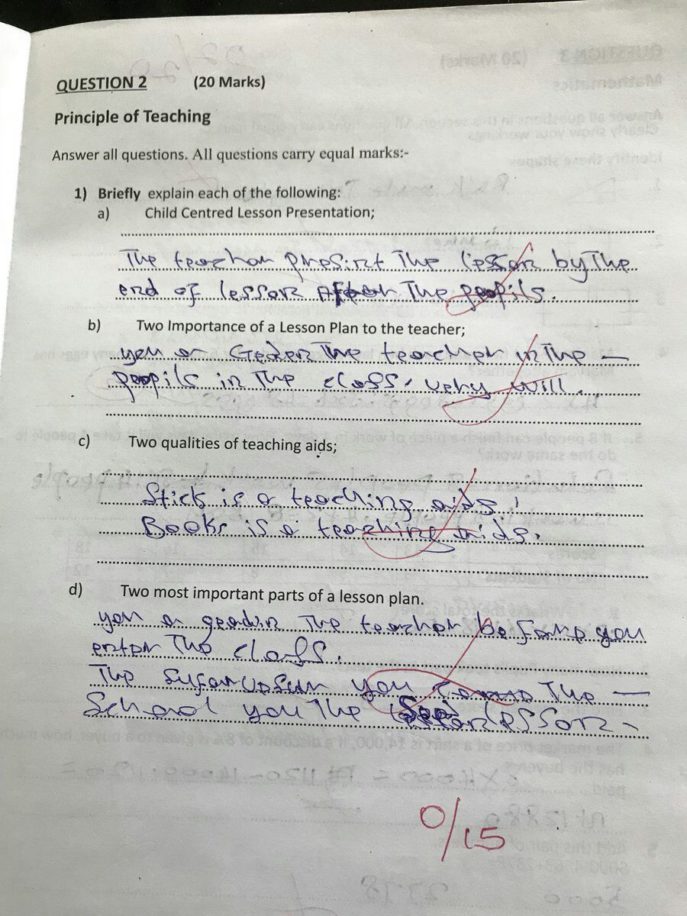 QUESTION 2 (20 Marks)
Principle of Teaching
Answer all questions. All questions carry equal marks:-
1) Briefly explain each of the following:
a) Child Centred Lesson Presentation;
The teachar presint The lesson by The
end of lesson After The peopils.
b) Two Importance of a Lesson Plan to the teacher;
you are The teachar in The —
peopils in The class. very will.
c) Two qualities of teaching aids;
Stick is a teaching aids,
Books is a teaching aids.
d) Two most important parts of a lesson plan.
you a The teachar be fore you
enter The class.
The you The —
School you The lesson -
0/15